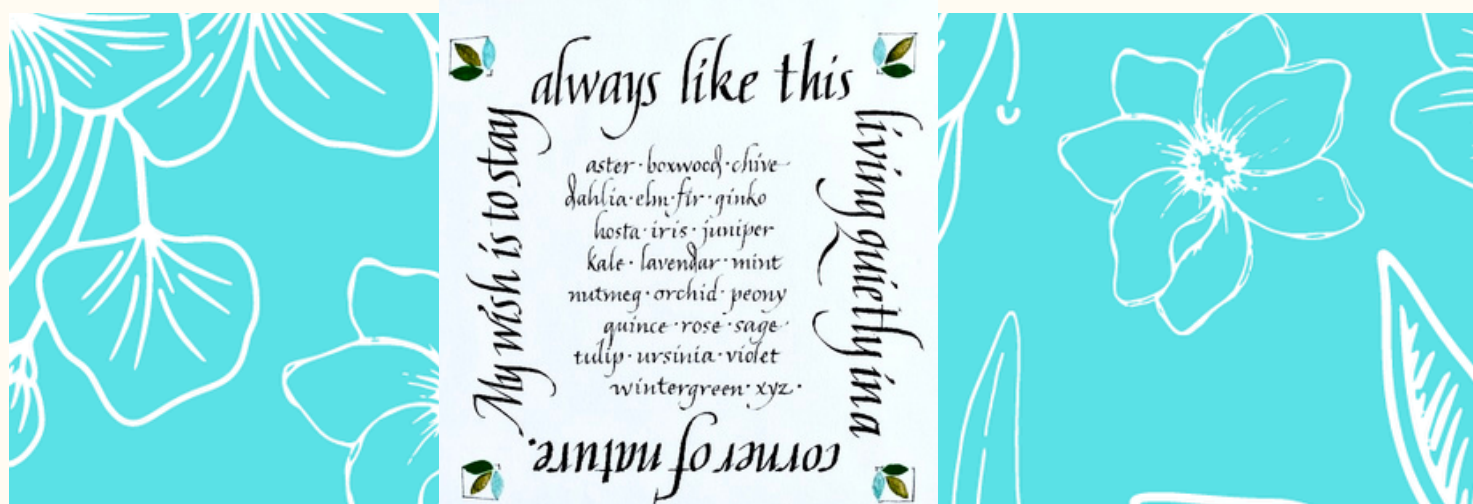 My wish is to stay
always like this
living quietly in a
corner of nature.
aster · boxwood · chive
dahlia · elm · fir · ginko
hosta · iris · juniper
kale · lavendar · mint
nutmeg · orchid · peony
quince · rose · sage ·
tulip · ursinia · violet
wintergreen · xyz ·